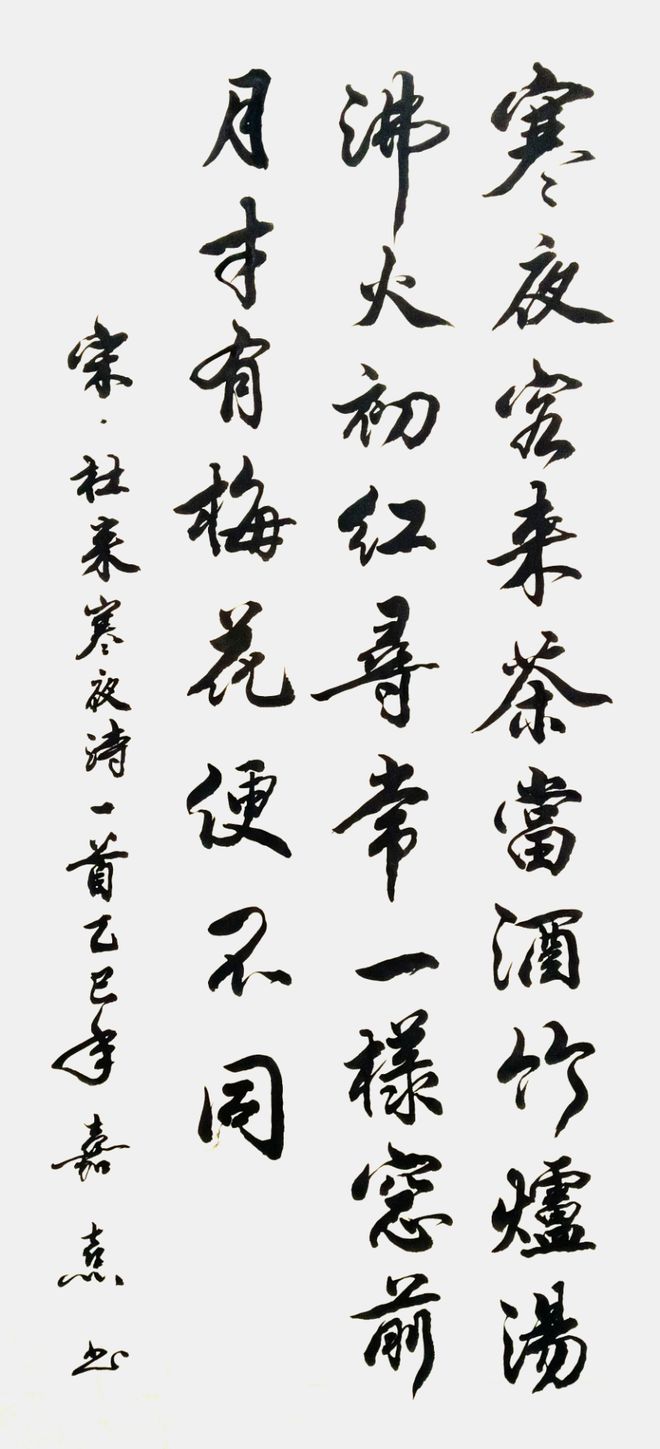 寒夜客來茶當酒竹爐湯
沸火初紅尋常一樣窓前
月才有梅花便不同
宋·杜耒寒夜詩一首乙巳年嘉熹书